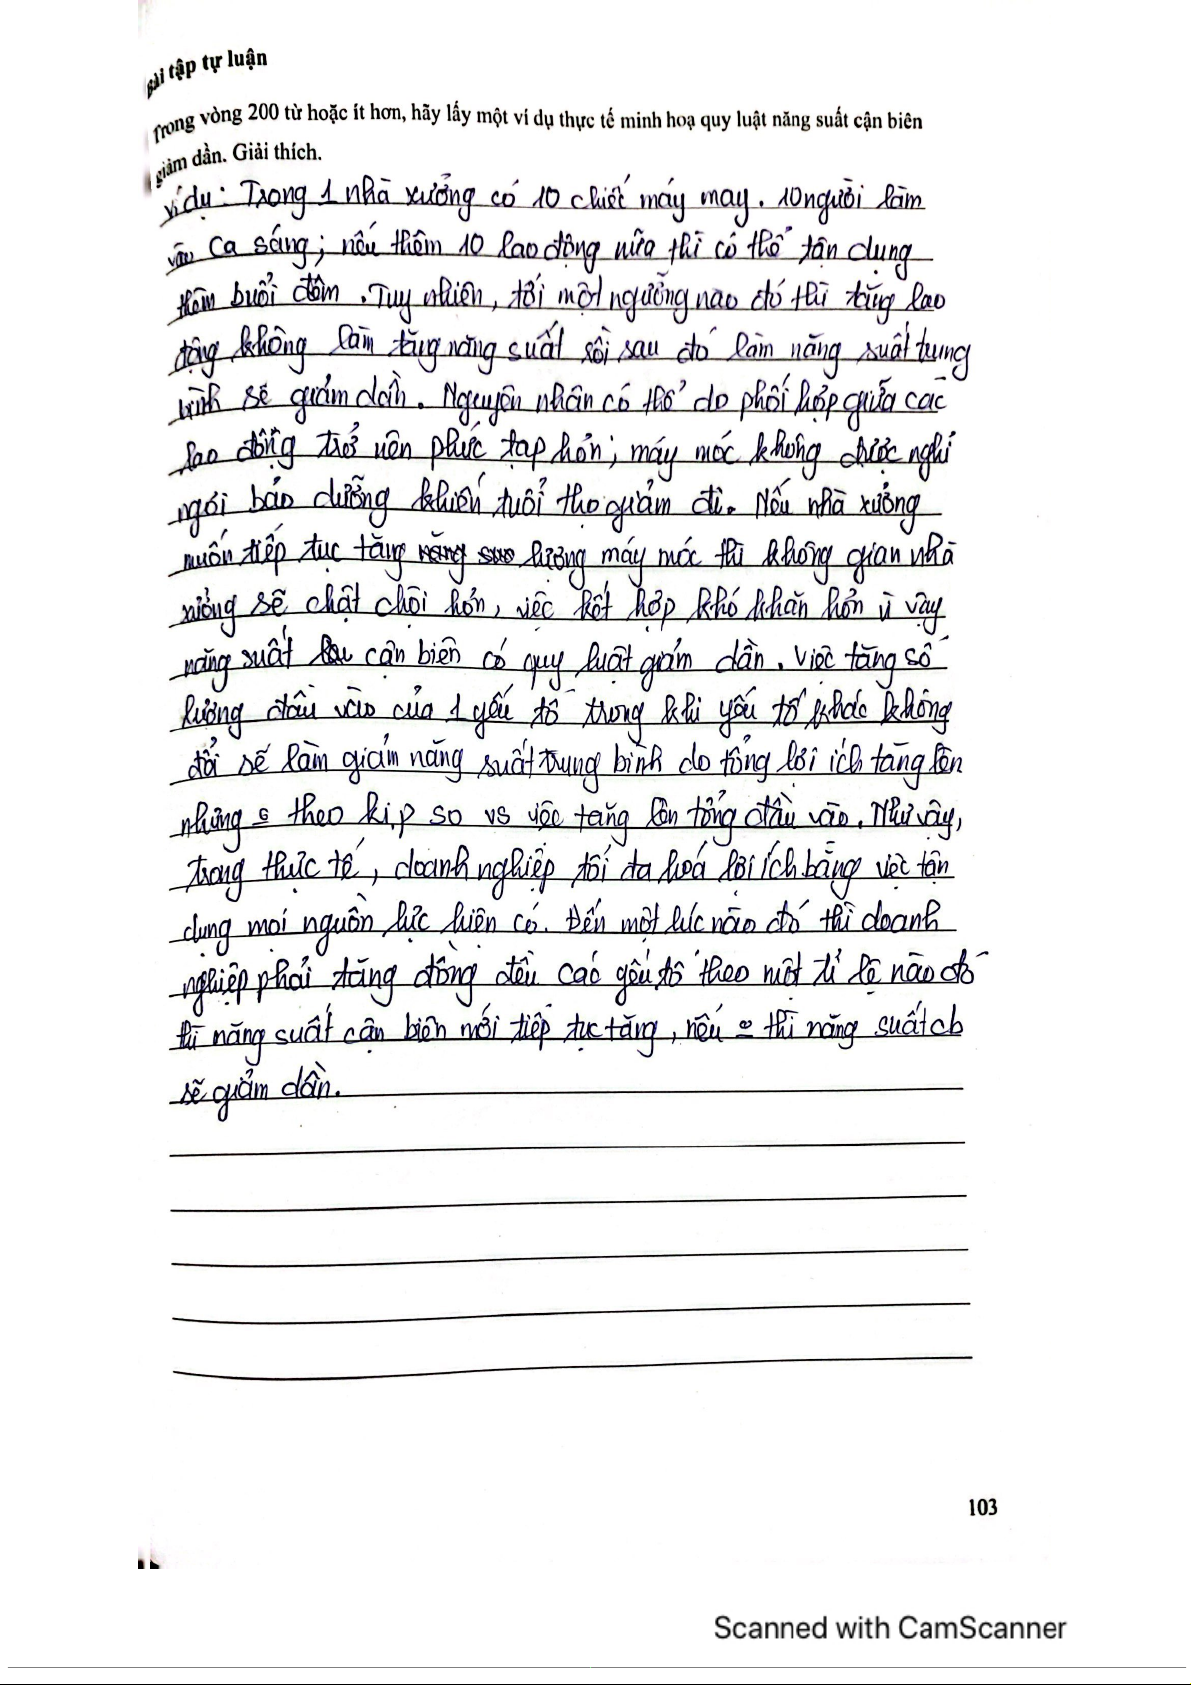 Bài tập tự luận
Trong vòng 200 từ hoặc ít hơn, hãy lấy một ví dụ thực tế minh hoạ quy luật năng suất cận biên
giảm dần. Giải thích.
ví dụ: Trong 1 nhà xưởng có 10 chiếc máy may. 10 người làm
vào ca sáng; nếu thêm 10 lao động nữa thì có thể tận dụng
thêm buổi đêm. Tuy nhiên, tới một ngưỡng nào đó thì tăng lao
động không làm tăng năng suất rồi sau đó làm năng suất trung
bình sẽ giảm dần. Nguyên nhân có thể do phối hợp giữa các
lao động trở nên phức tạp hơn; máy móc không được nghỉ
ngơi bảo dưỡng khiến tuổi thọ giảm đi. Nếu nhà xưởng
muốn tiếp tục tăng lượng máy móc thì không gian nhà
xưởng sẽ chật chội hơn, việc kết hợp khó khăn hơn vì vậy
năng suất cận biên có quy luật giảm dần. Việc tăng số
lượng đầu vào của 1 yếu tố trong khi yếu tố khác không
đổi sẽ làm giảm năng suất trung bình do tổng lợi ích tăng lên
nhưng theo kịp so vs việc tăng lên tổng đầu vào. Như vậy,
trong thực tế, doanh nghiệp tối đa hoá lợi ích bằng việc tận
dụng mọi nguồn lực hiện có. Đến một lúc nào đó thì doanh
nghiệp phải tăng đồng đều các yếu tố theo một tỉ lệ nào đó
thì năng suất cận biên mới tiếp tục tăng, nếu thì năng suất cb
sẽ giảm dần.
103
Scanned with CamScanner